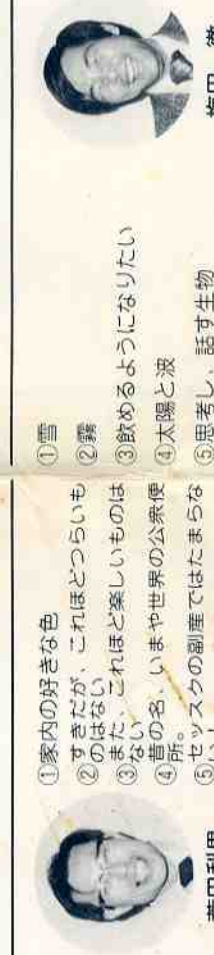 ①雪
②霧
③飲めるようになりたい
④太陽と波
⑤思考し、話す生物
①家内の好きな色
②すきだが、これほどつらいも
のはない
③また、これほど楽しいものは
ない
④昔の名、いまや世界の公衆便
所。
⑤セッスクの副産ではたまらな